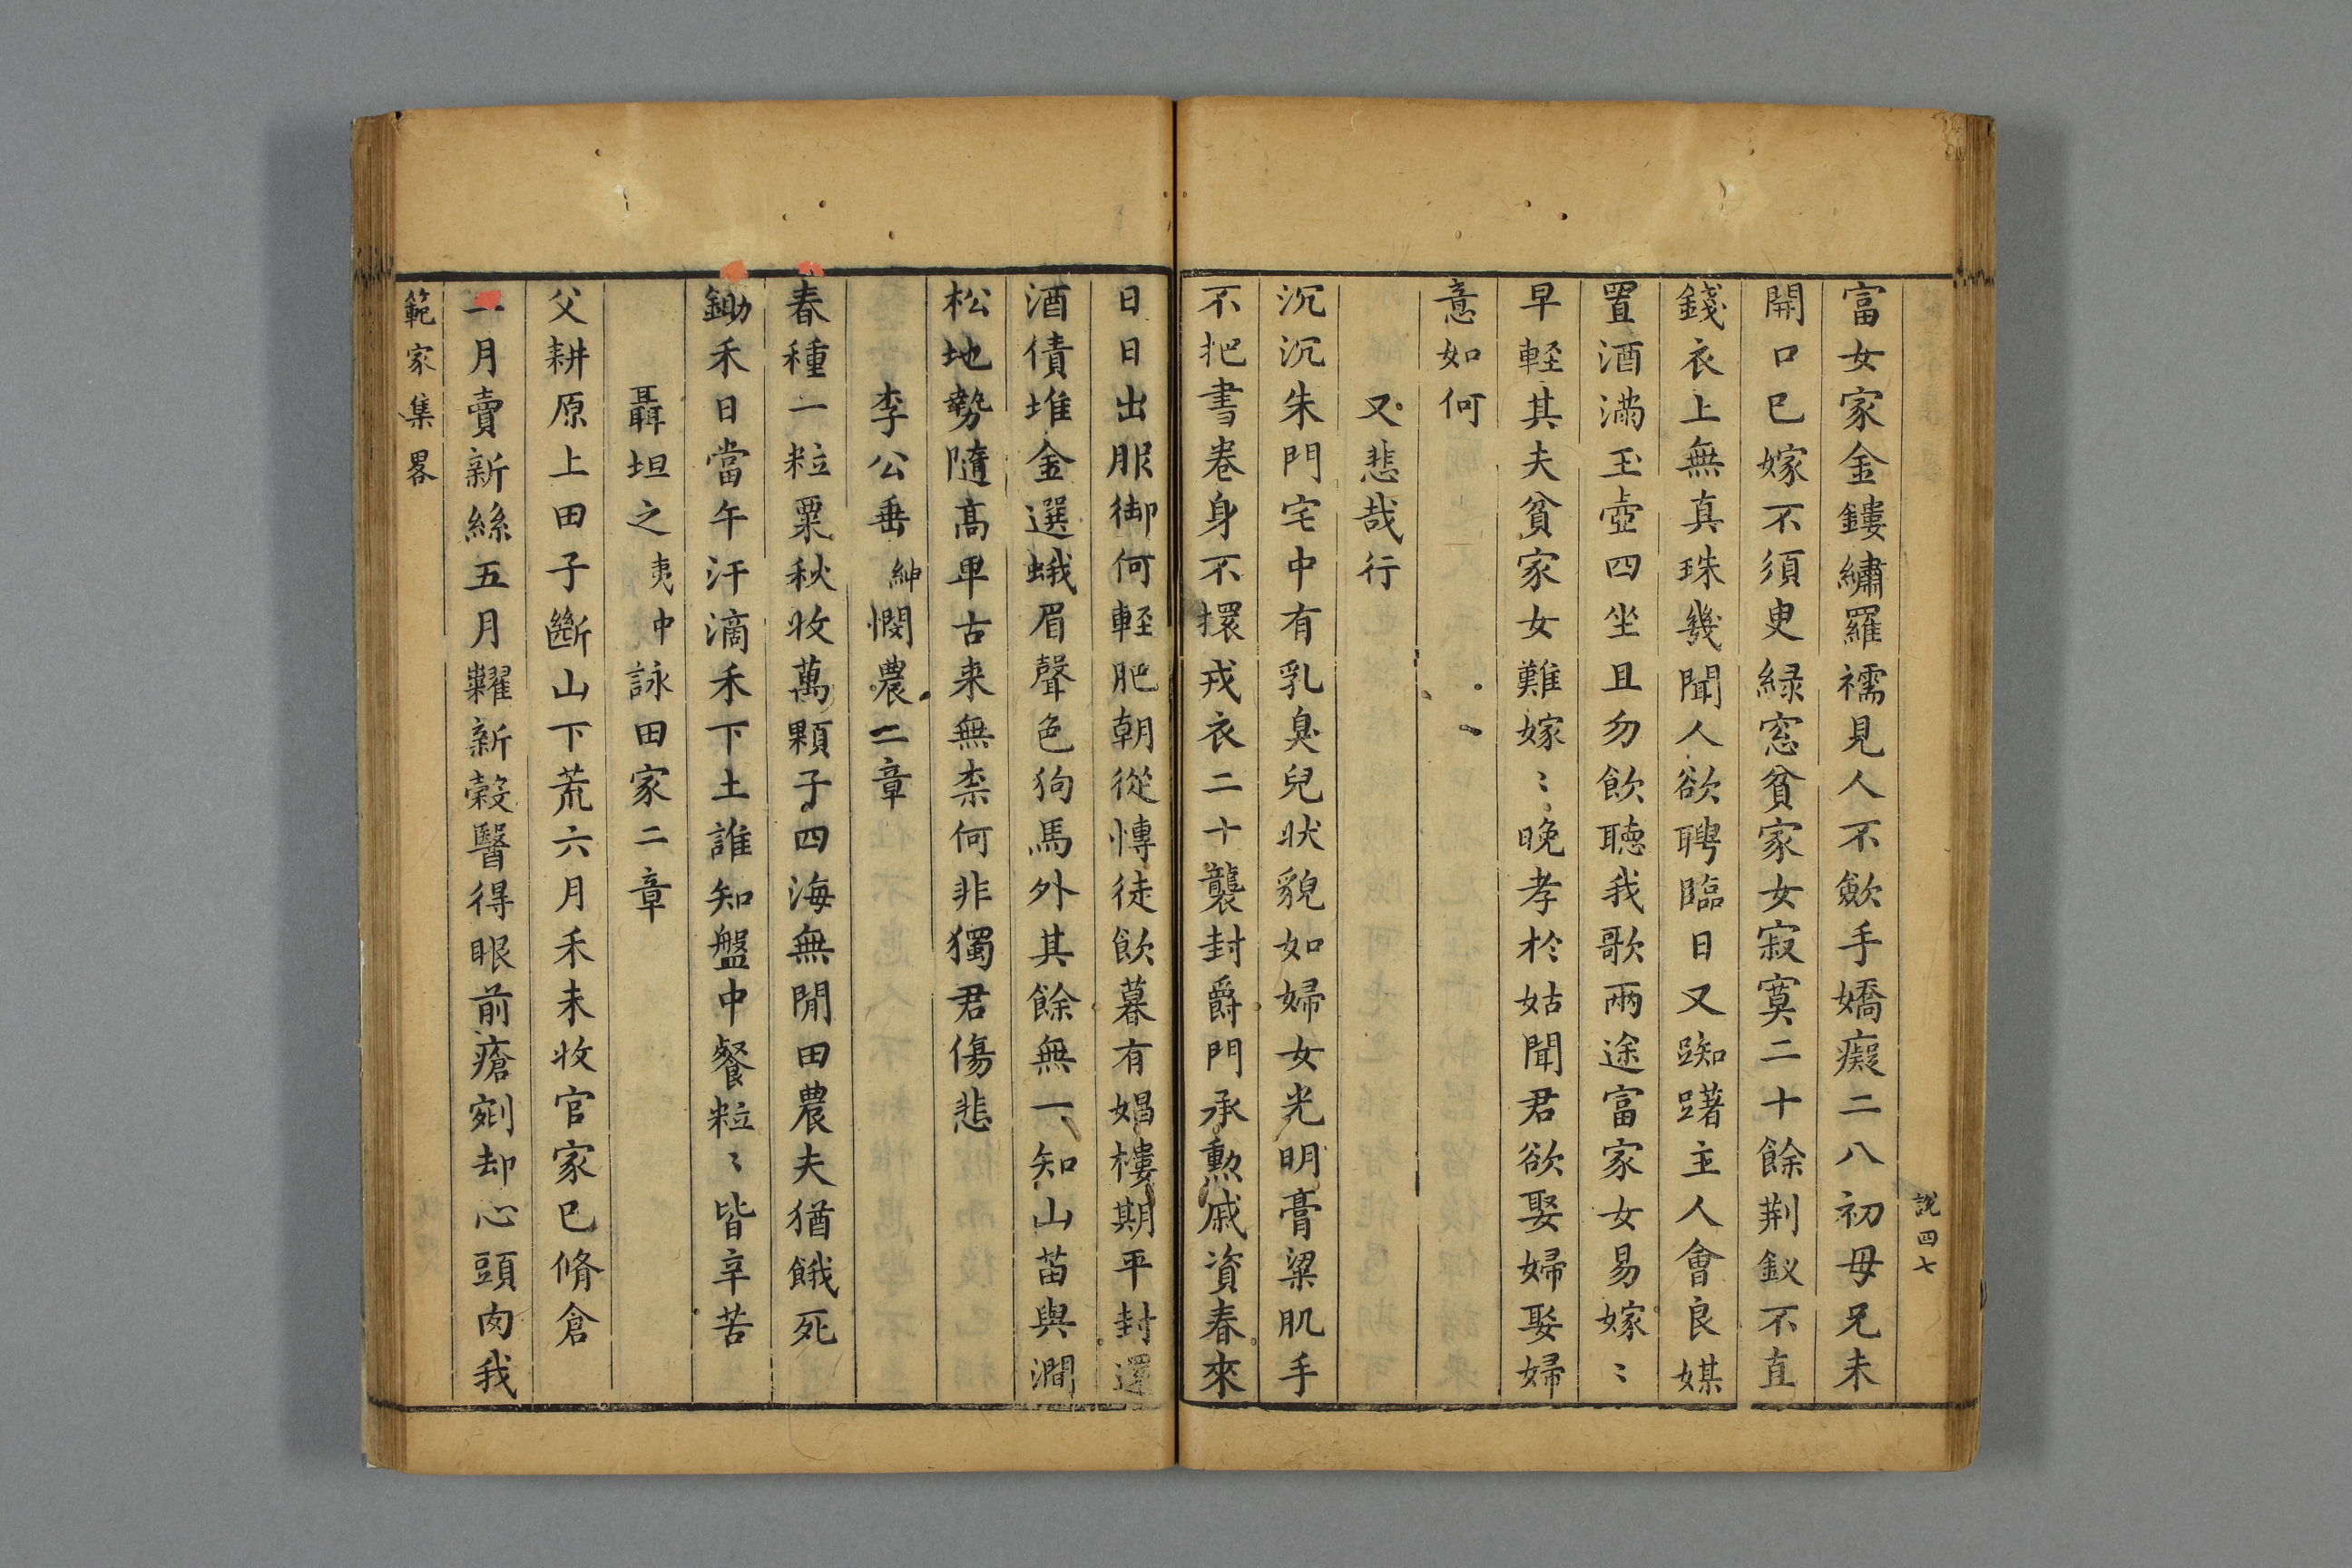 說四七
富女家金鏤繡羅襦見人不歛手嬌癡二八初母兄未
開口巳嫁不須㬰緑窓貧家女寂寞二十餘荆釵不直
錢衣上無真珠幾聞人欲聘臨日又踟躇主人會良媒
置酒滿玉壺四坐且勿飲聴我歌兩途富家女易嫁〻
早輕其夫貧家女難嫁〻晚孝於姑聞君欲娶婦娶婦
意如何
又悲哉行
沉沉朱門宅中有乳臭兒狀貌如婦女光明膏粱肌手
不把書卷身不擐戎衣二十襲封爵門承勲戚資春來
日日出服御何輕肥朝從慱徒飲暮有娼樓期平封還
酒債堆金選蛾眉聲色狗馬外其餘無一知山苗與澗
松地勢隨高卑古来無柰何非獨君傷悲
李公垂紳憫農二章
春種一粒粟秋收萬顆子四海無閒田農夫猶餓死
鋤禾日當午汗滴禾下土誰知盤中餐粒〻皆辛苦
聶坦之夷中詠田家二章
父耕原上田子斸山下荒六月禾未收官家巳脩倉
二月賣新絲五月糶新榖醫得眼前瘡剜却心頭肉我
範家集畧